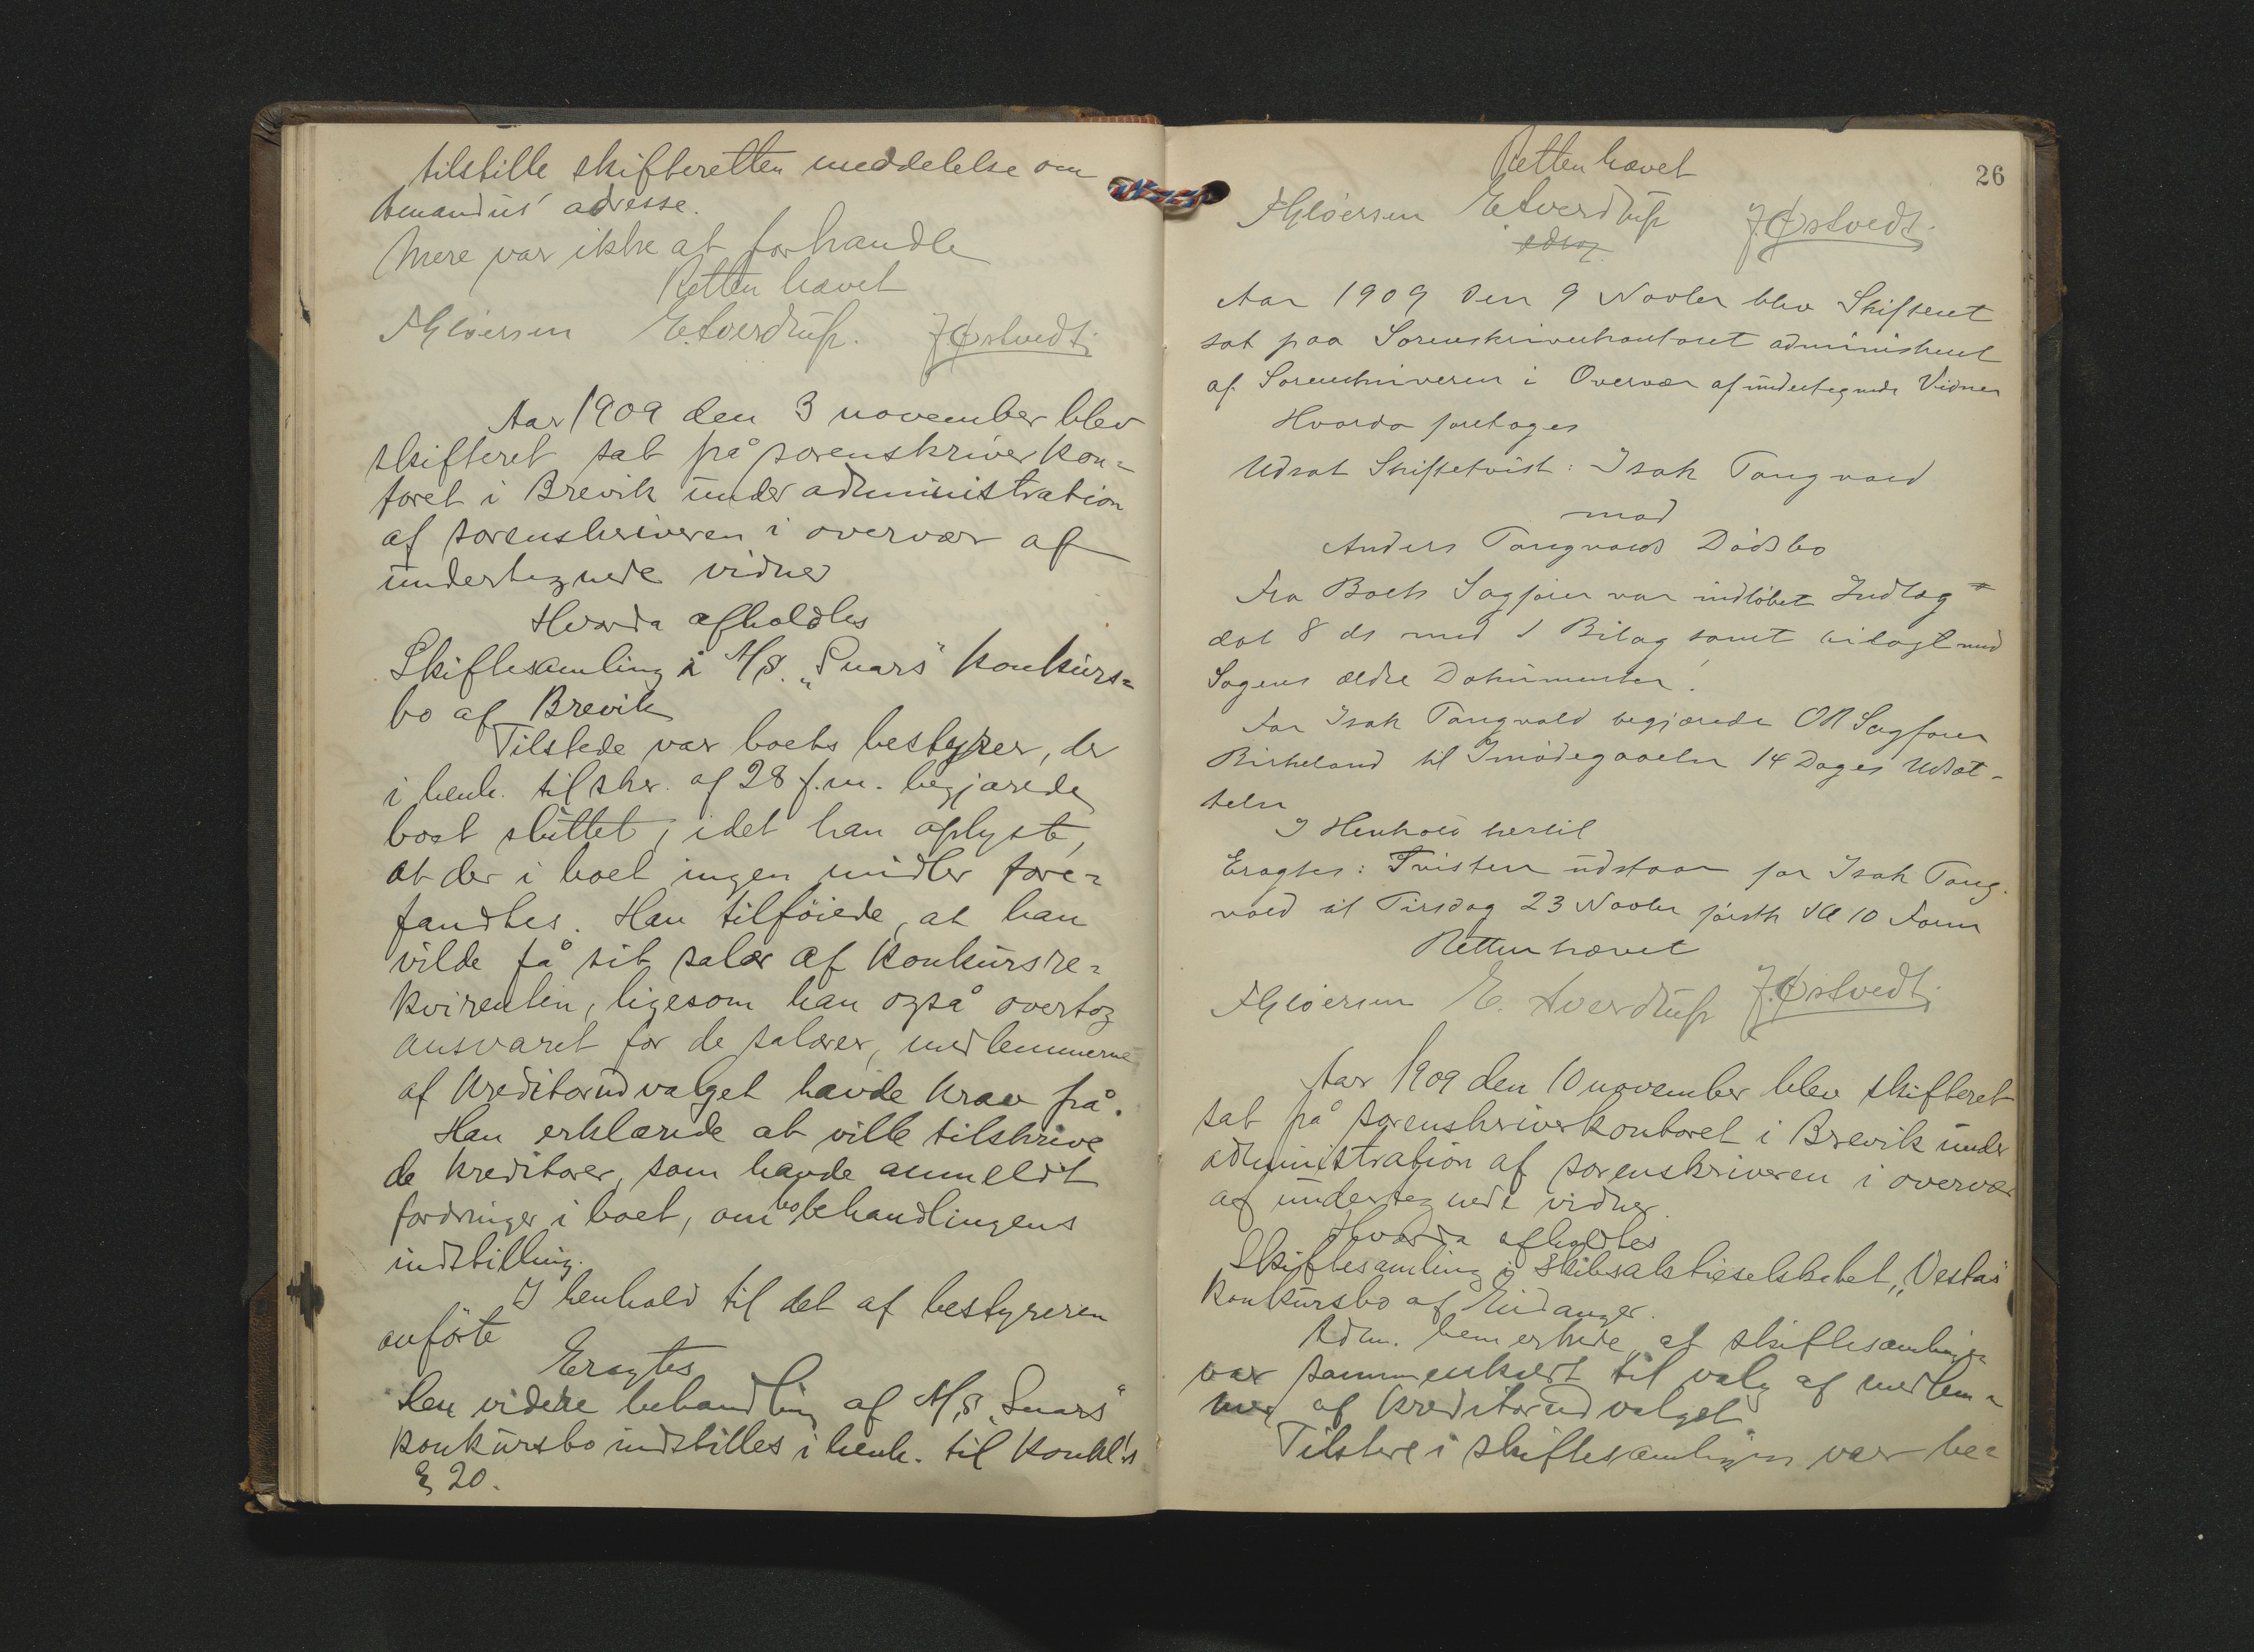 tilstille skifteretten meddelelse om
Amandus' adresse.
Mere var ikke at forhandle
Retten hævet
E. Sverdrup. J. Østvedt.
Aar 1909 den 3 november blev
skifteret sat på sorenskriverkon=
toret i Brevik under administration
af sorenskriveren i overvær af
undertegnede vidner
Hvorda afholdtes
Skiftesamling i A/S. „Snars" konkurs=
bo af Brevik
Tilstede var boets bestyrer, der
i henh. til skr. af 28 f.m. begjærede
boet sluttet, idet han oplyste,
at der i boet ingen midler fore=
fandtes. Han tilføiede, at han
vilde få sit salær af konkursre=
kvirenten, ligesom han også overtog
ansvaret for de salærer, medlemmerne
af kreditorudvalget havde krav på.
Han erklærede at ville tilskrive
de kreditorer, som havde anmeldt
fordringer i boet, om bobehandlingens
indstilling.
I henhold til det af bestyreren
anførte
Eragtes
Den videre behandling af A/S „Snars"
konkursbo indstilles i henh. til konkl's
§ 20.
26
Retten hævet
E Sverdrup J. Østvedt.
Aar 1909 den 9 Novbr blev Skifteret
sat paa Sorenskriverkontoret administreret
af Sorenskriveren i Overvær af undertegnede Vidner
Hvorda foretoges
Udsat Skiftetvist: Isak Tangvald
mod
Anders Tangvalds Dødsbo
Fra Boets Sagfører var indløbet Indlæg
dat 8 ds med 1 Bilag samt bilagt med
Sagens ældre Dokumenter.
For Isak Tangvald begjærede OR Sagfører
Birkeland til Imødegaaelse 14 Dages Udsæt-
telse
I Henhold hertil
Eragtes: Tvisten udstaar for Isak Tang-
vald til Tirsdag 23 Novbr førstk Kl 10 Form
Retten hævet
E. Sverdrup J. Østvedt.
Aar 1909 den 10 november blev skifteret
sat på sorenskriverkontoret i Brevik under
administration af sorenskriveren i overvær
af undertegnede vidner.
Hvorda afholdtes
Skiftesamling i Skibsaktieselskabet „Vestas"
konkursbo af Eidanger.
Adm. bemerkede, at skiftesamlingen
var sammenkaldt til valg af medlem=
mer af kreditorudvalget
Tilstede i skiftesamlingen var be=